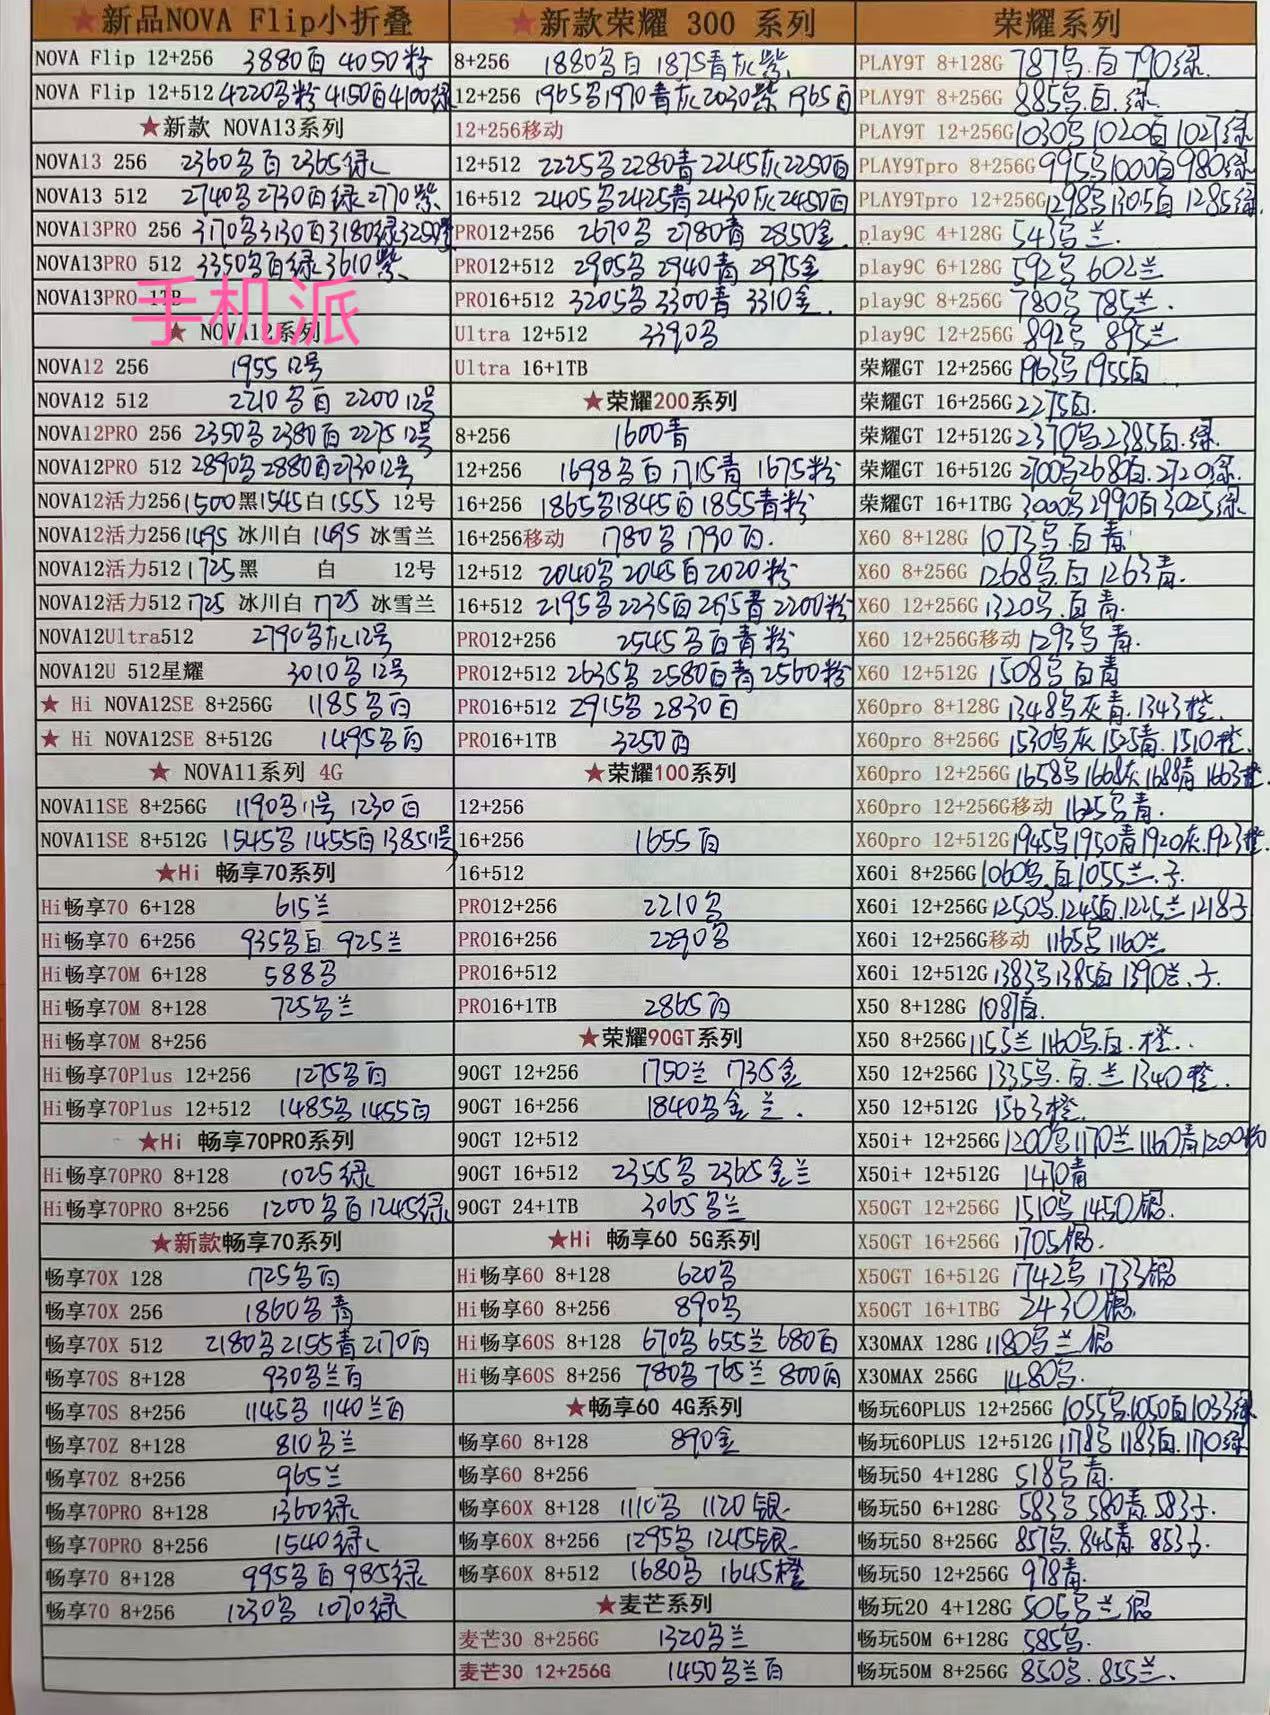 ★新品NOVA Flip小折叠
NOVA Flip 12+256 3880白 4050粉
NOVA Flip 12+512 4220乌粉 4150白 4100绿
★新款 NOVA13系列
NOVA13 256 2360乌白 2365绿
NOVA13 512 2740乌 2730白绿 2770紫
NOVA13PRO 256 3170乌 3130白 3180绿 3250紫
NOVA13PRO 512 3350乌白绿 3610紫
NOVA13PRO 1TB
手机派
★ NOVA12系列
NOVA12 256 1955 12号
NOVA12 512 2210乌白 2200 12号
NOVA12PRO 256 2350乌 2380白 2275 12号
NOVA12PRO 512 2890乌 2880白 2730 12号
NOVA12活力256 1500黑 1545白 1555 12号
NOVA12活力256 1495 冰川白 1495 冰雪兰
NOVA12活力512 1725黑 白 12号
NOVA12活力512 1725 冰川白 1725 冰雪兰
NOVA12Ultra512 2790乌灰12号
NOVA12U 512星耀 3010乌 12号
★ Hi NOVA12SE 8+256G 1185乌白
★ Hi NOVA12SE 8+512G 1495乌白
★ NOVA11系列 4G
NOVA11SE 8+256G 1190乌11号 1230白
NOVA11SE 8+512G 1545乌 1455白 1385 11号
★Hi 畅享70系列
Hi畅享70 6+128 615兰
Hi畅享70 6+256 935乌白 925兰
Hi畅享70M 6+128 588乌
Hi畅享70M 8+128 725乌兰
Hi畅享70M 8+256
Hi畅享70Plus 12+256 1275乌白
Hi畅享70Plus 12+512 1485乌 1455白
★Hi 畅享70PRO系列
Hi畅享70PRO 8+128 1025绿
Hi畅享70PRO 8+256 1200乌白 1245绿
★新款畅享70系列
畅享70X 128 1725乌白
畅享70X 256 1860乌青
畅享70X 512 2180乌 2155青 2170白
畅享70S 8+128 930乌兰白
畅享70S 8+256 1145乌 1140兰白
畅享70Z 8+128 810乌兰
畅享70Z 8+256 965兰
畅享70PRO 8+128 1360绿
畅享70PRO 8+256 1540绿
畅享70 8+128 995乌白 985绿
畅享70 8+256 1230乌 1070绿
★新款荣耀 300 系列
8+256 1880乌白 1875青灰紫
12+256 1965乌 1970青灰 2030紫 1965白
12+256移动
12+512 2225乌 2280青 2245灰 2250白
16+512 2405乌 2425青 2430灰 2450白
PRO12+256 2670乌 2780青 2850金
PRO12+512 2905乌 2940青 2975金
PRO16+512 3205乌 3300青 3310金
Ultra 12+512 3390乌
Ultra 16+1TB
★荣耀200系列
8+256 1600青
12+256 1698乌白 1715青 1675粉
16+256 1865乌 1845白 1855青粉
16+256移动 1780乌 1790白.
12+512 2040乌 2045白 2020粉
16+512 2195乌 2235白 2195青 2200粉
PRO12+256 2545乌白青粉
PRO12+512 2635乌 2580白青 2560粉
PRO16+512 2915乌 2830白
PRO16+1TB 3250白
★荣耀100系列
12+256
16+256 1655白
16+512
PRO12+256 2210乌
PRO16+256 2290乌
PRO16+512
PRO16+1TB 2865白
★荣耀90GT系列
90GT 12+256 1750兰 1735金
90GT 16+256 1840乌金兰.
90GT 12+512
90GT 16+512 2355乌 2365金兰
90GT 24+1TB 3065乌兰
★Hi 畅享60 5G系列
Hi畅享60 8+128 620乌
Hi畅享60 8+256 890乌
Hi畅享60S 8+128 670乌 655兰 680白
Hi畅享60S 8+256 780乌 765兰 800白
★畅享60 4G系列
畅享60 8+128 890金
畅享60 8+256
畅享60X 8+128 1110乌 1120银
畅享60X 8+256 1295乌 1245银
畅享60X 8+512 1680乌 1645橙
★麦芒系列
麦芒30 8+256G 1320乌兰
麦芒30 12+256G 1450乌兰白
荣耀系列
PLAY9T 8+128G 787乌.白 790绿.
PLAY9T 8+256G 885乌.白.绿
PLAY9T 12+256G 1030乌 1020白 1027绿
PLAY9Tpro 8+256G 995乌 1000白 980绿
PLAY9Tpro 12+256G 1298乌 1305白 1285绿
play9C 4+128G 543乌兰.
play9C 6+128G 592乌 602兰
play9C 8+256G 780乌 785兰.
play9C 12+256G 892乌 895兰
荣耀GT 12+256G 1963乌 1955白
荣耀GT 16+256G 2275白.
荣耀GT 12+512G 2370乌.2385白.绿.
荣耀GT 16+512G 2700乌 2680白.2720绿.
荣耀GT 16+1TBG 3000乌 2990白 3025绿
X60 8+128G 1073乌.白青
X60 8+256G 1268乌.白 1263青.
X60 12+256G 1320乌.白青.
X60 12+256G移动 1293乌青.
X60 12+512G 1508乌白青
X60pro 8+128G 1348乌灰青.1343橙.
X60pro 8+256G 1530乌灰 1525青.1510橙.
X60pro 12+256G 1658乌 1668灰 1688青 1663橙.
X60pro 12+256G移动 1625乌青.
X60pro 12+512G 1945乌 1950青 1920灰.1923橙.
X60i 8+256G 1060乌.白 1055兰.子
X60i 12+256G 1250乌.1245白.1225兰 1218子
X60i 12+256G移动 1165乌 1160兰
X60i 12+512G 1383乌 1385白 1390兰.子.
X50 8+128G 1087白.
X50 8+256G 1155兰 1160乌.白.橙..
X50 12+256G 1335乌.白.兰 1340橙.
X50 12+512G 1563橙.
X50i+ 12+256G 1200乌 1170兰 1160青 1200粉
X50i+ 12+512G 1470青
X50GT 12+256G 1510乌 1450银.
X50GT 16+256G 1705银.
X50GT 16+512G 1742乌 1733银
X50GT 16+1TBG 2430银.
X30MAX 128G 1180乌兰银
X30MAX 256G 1480乌.
畅玩60PLUS 12+256G 1055乌.1050白 1033绿
畅玩60PLUS 12+512G 1178乌 1183白.1170绿
畅玩50 4+128G 518乌青.
畅玩50 6+128G 583乌 580青.583子.
畅玩50 8+256G 857乌.845青.853子.
畅玩50 12+256G 978青.
畅玩20 4+128G 506乌兰银
畅玩50M 6+128G 585乌.
畅玩50M 8+256G 850乌.855兰.